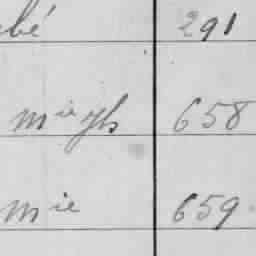 bé 291
mie jh 658
mie 659